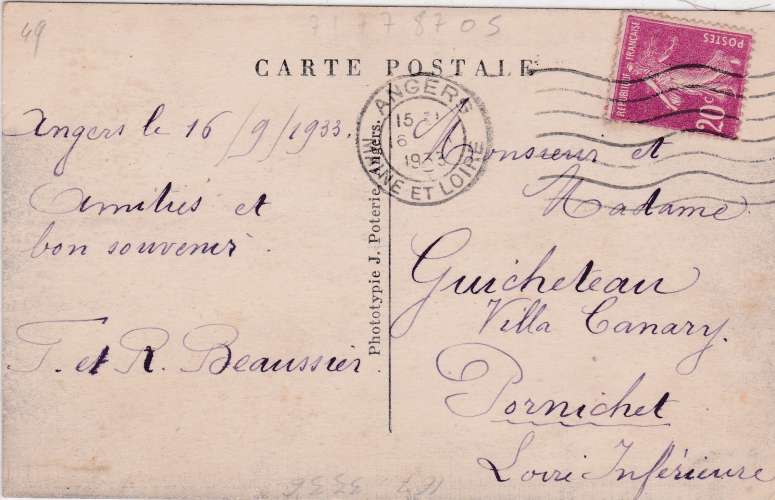 49
71 7 78705
CARTE POSTALE
Angers le 16/9/1933.
Amitiés et
bon souvenir.
F. et R. Beaussier
Phototypie J. Poterie, Angers.
ANGERS
15
6
1933
MAINE ET LOIRE
REPUBLIQUE FRANÇAISE
POSTES
20c
Monsieur et
Madame
Guicheteau
Villa Canary.
Pornichet
Loire Inférieure